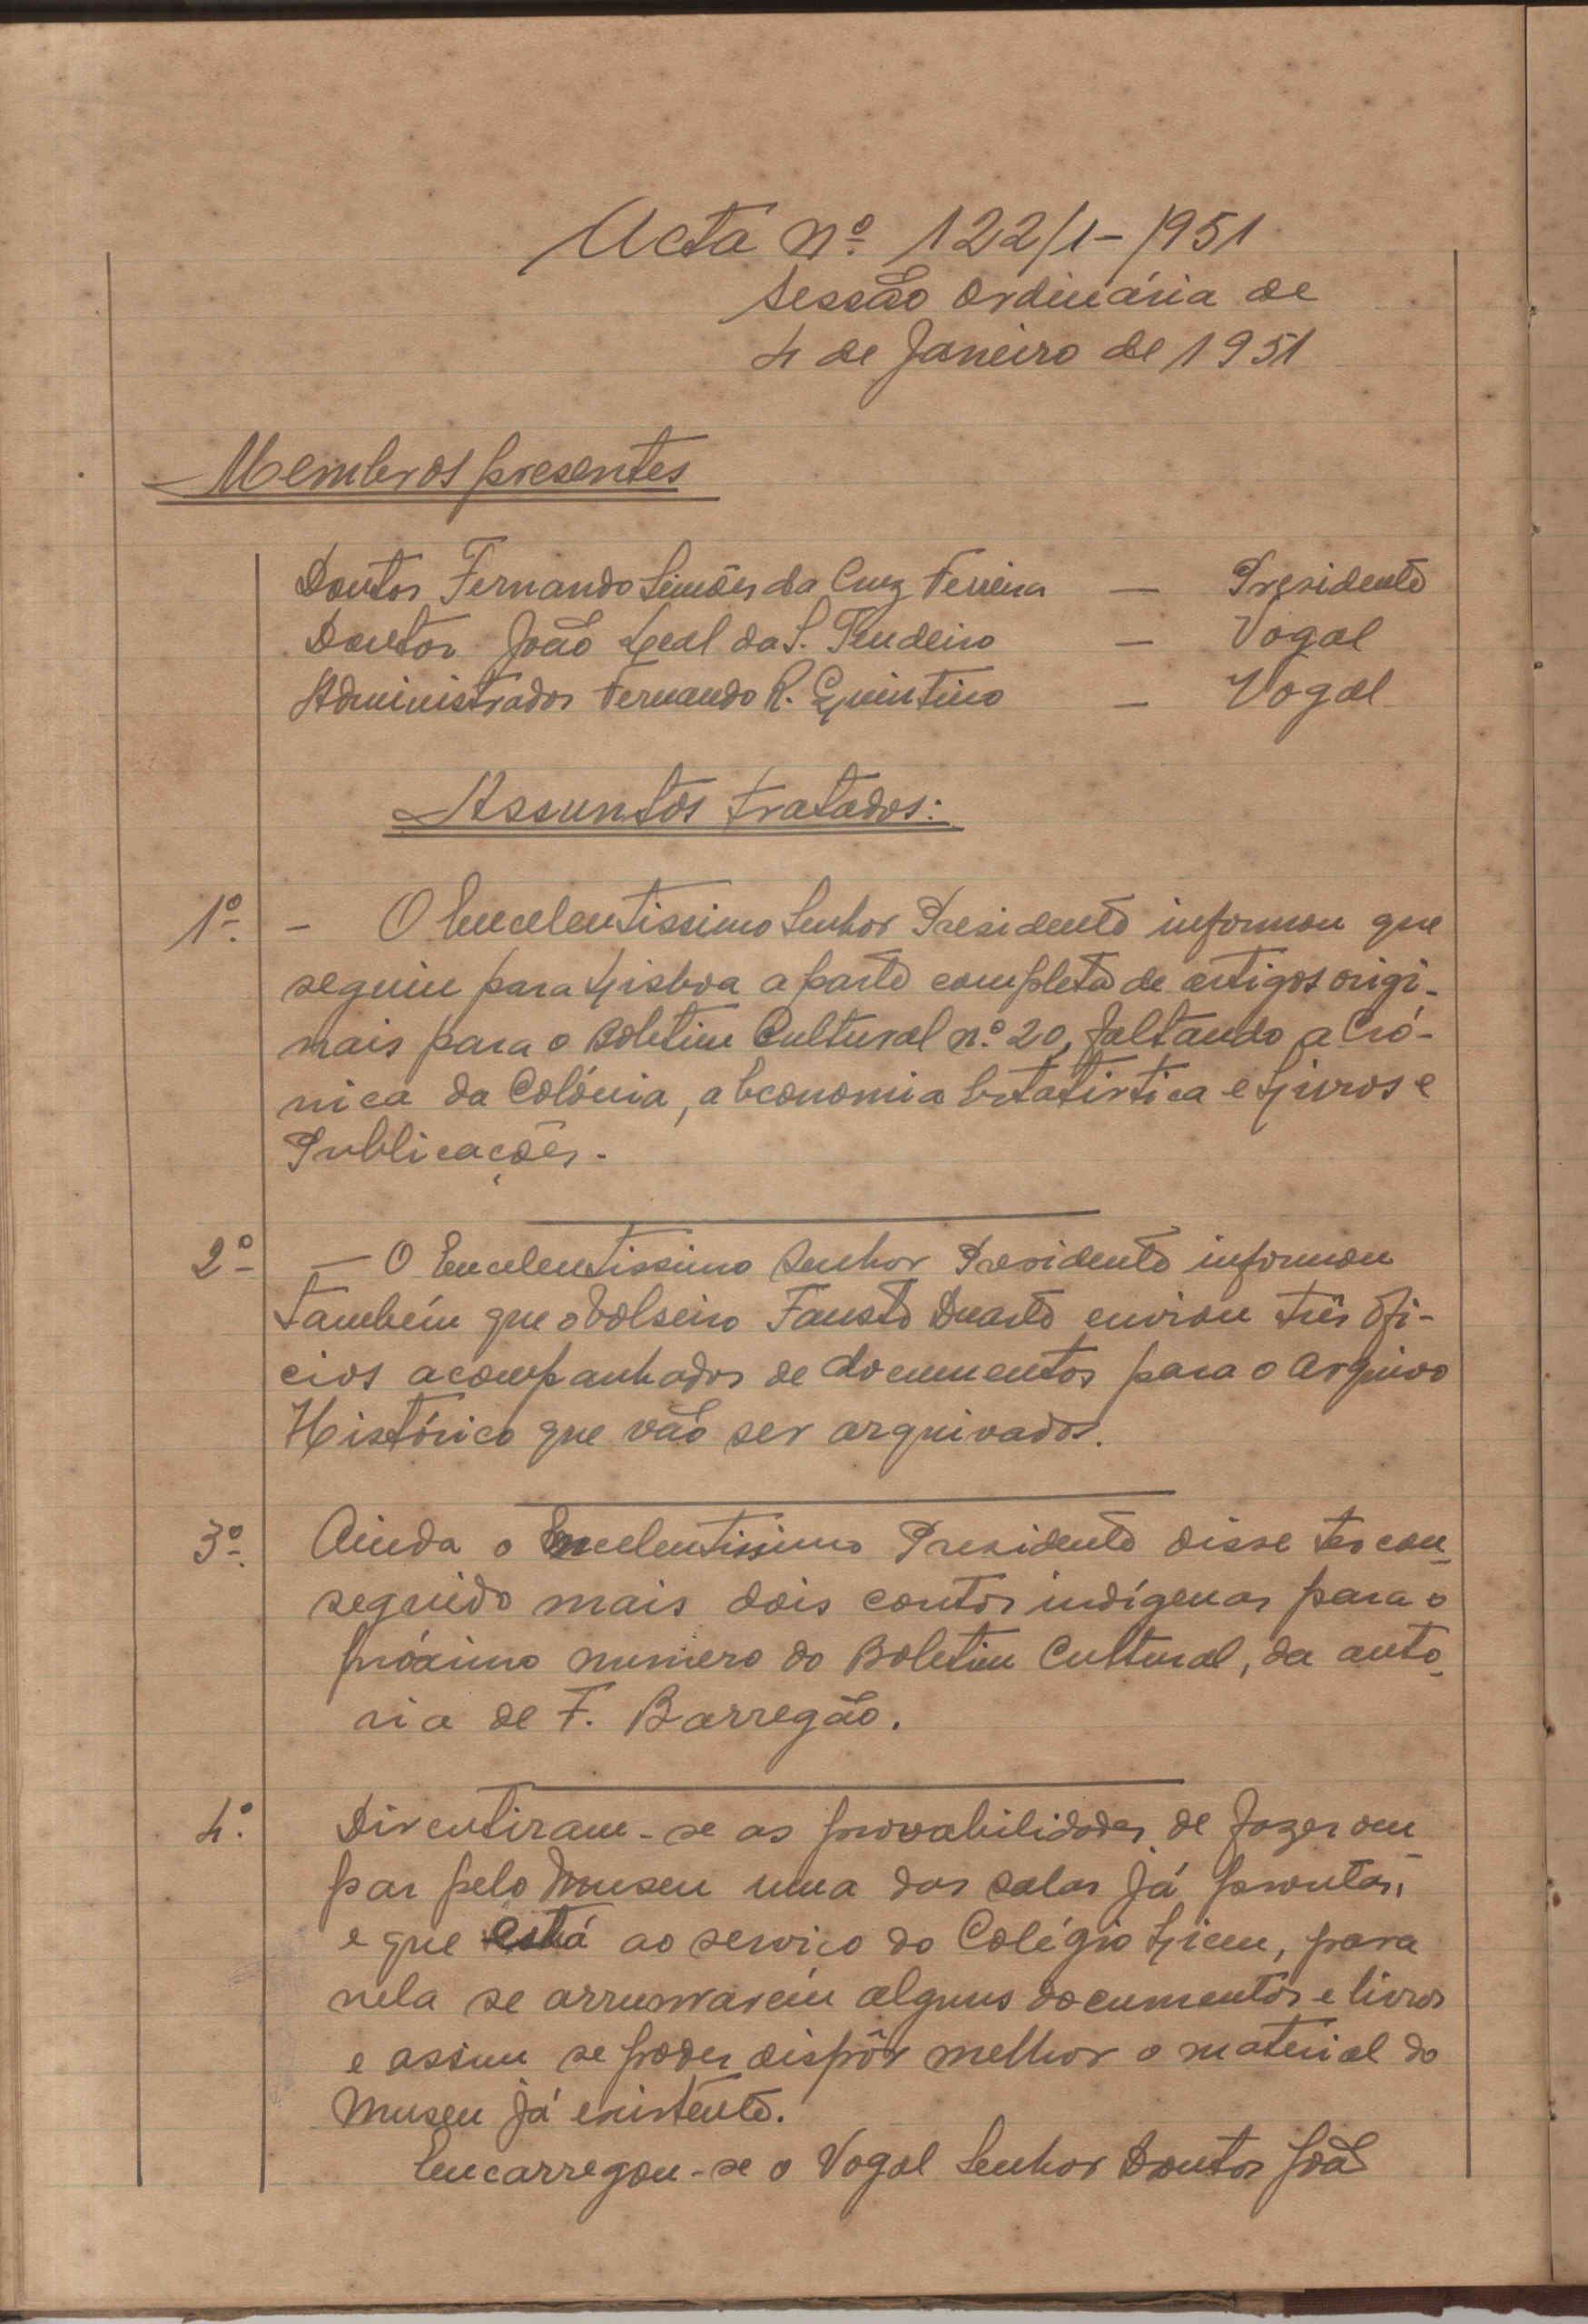 Acta nº. 122/1-1951
Sessão Ordinária de
4 de Janeiro de 1951
Membros presentes
Doutor Fernando Simões da Cruz Ferreira — Presidente
Doutor João Leal da S. Tendeiro — Vogal
Administrador Fernando R. Quintino — Vogal
Assuntos tratados:
1º. - O Excelentissimo Senhor Presidente informou que
seguiu para Lisboa a parte completa de artigos origi-
nais para o Boletim Cultural n.º 20, faltando a Cró-
nica da Colónia, a Economia Estatistica e Livros e
Publicações.
2º — O Excelentissimo Senhor Presidente informou
também que o bolseiro Fausto Duarte enviou três ofi-
cios acompanhados de documentos para o Arquivo
Histórico que vão ser arquivados.
3º. Ainda o Excelentissimo Presidente disse ter con-
seguido mais dois contos indígenas para o
próximo numero do Boletim Cultural, da auto-
ria de F. Barregão.
4º. Discutiram-se as provabilidades de fazer ocu-
par pelo Museu uma das salas já prontas,
e que está ao serviço do Colégio Liceu, para
nela se arrumarem alguns documentos e livros
e assim se poder dispôr melhor o material do
Museu já existente.
Encarregou-se o Vogal Senhor Doutor João